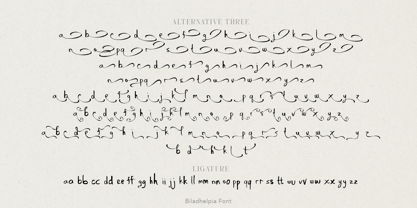 ALTERNATIVE THREE
a b c d e f g h i j k l m
n o p q r s t u v w x y z
a b c d e f g h i j k l m
n o p q r s t u v w x y z
a b c d e f g h i j k l m n o p q r s t u v w x y z
a b c d e f g h i j k l m n o p q r s t u v w x y z
a b c d e f g h i j k l m n o p q r s t u v w x y z
b d h k l t
LIGATURE
aa bb cc dd ee ff gg hh ii jj kk ll mm nn oo pp qq rr ss tt uu vv uu xx yy zz
Biladhelpia Font